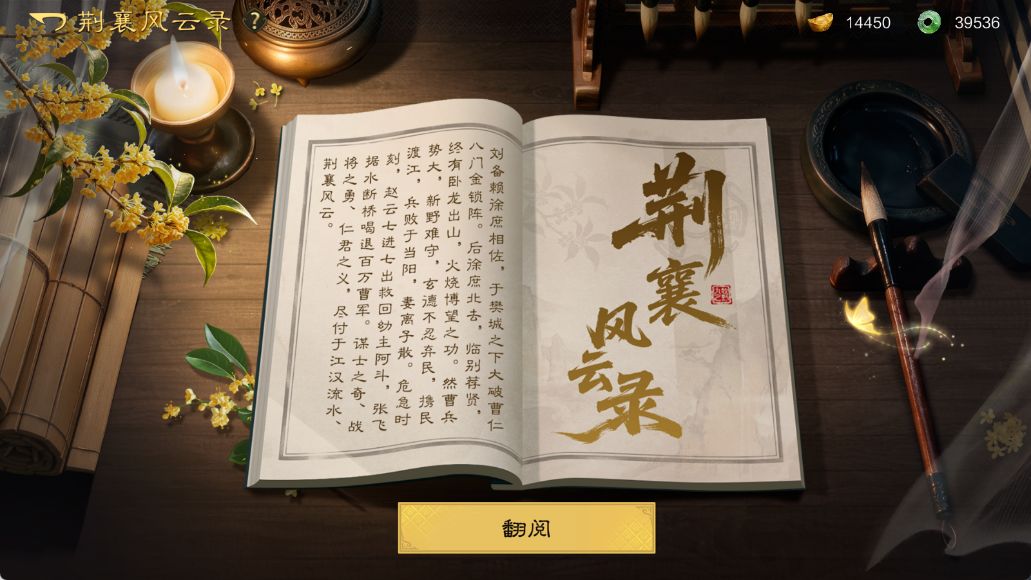 荆襄风云录 ?
14450
39536
刘备赖徐庶相佐，于樊城之下大破曹仁
八门金锁阵。后徐庶北去，临别荐贤，
终有卧龙出山，火烧博望之功。然曹兵
势大，新野难守，玄德不忍弃民，携民
渡江，兵败于当阳，妻离子散。危急时
刻，赵云七进七出救回幼主阿斗，张飞
据水断桥喝退百万曹军。谋士之奇、战
将之勇、仁君之义，尽付于江汉流水、
荆襄风云。
荆襄
风云录
翻阅